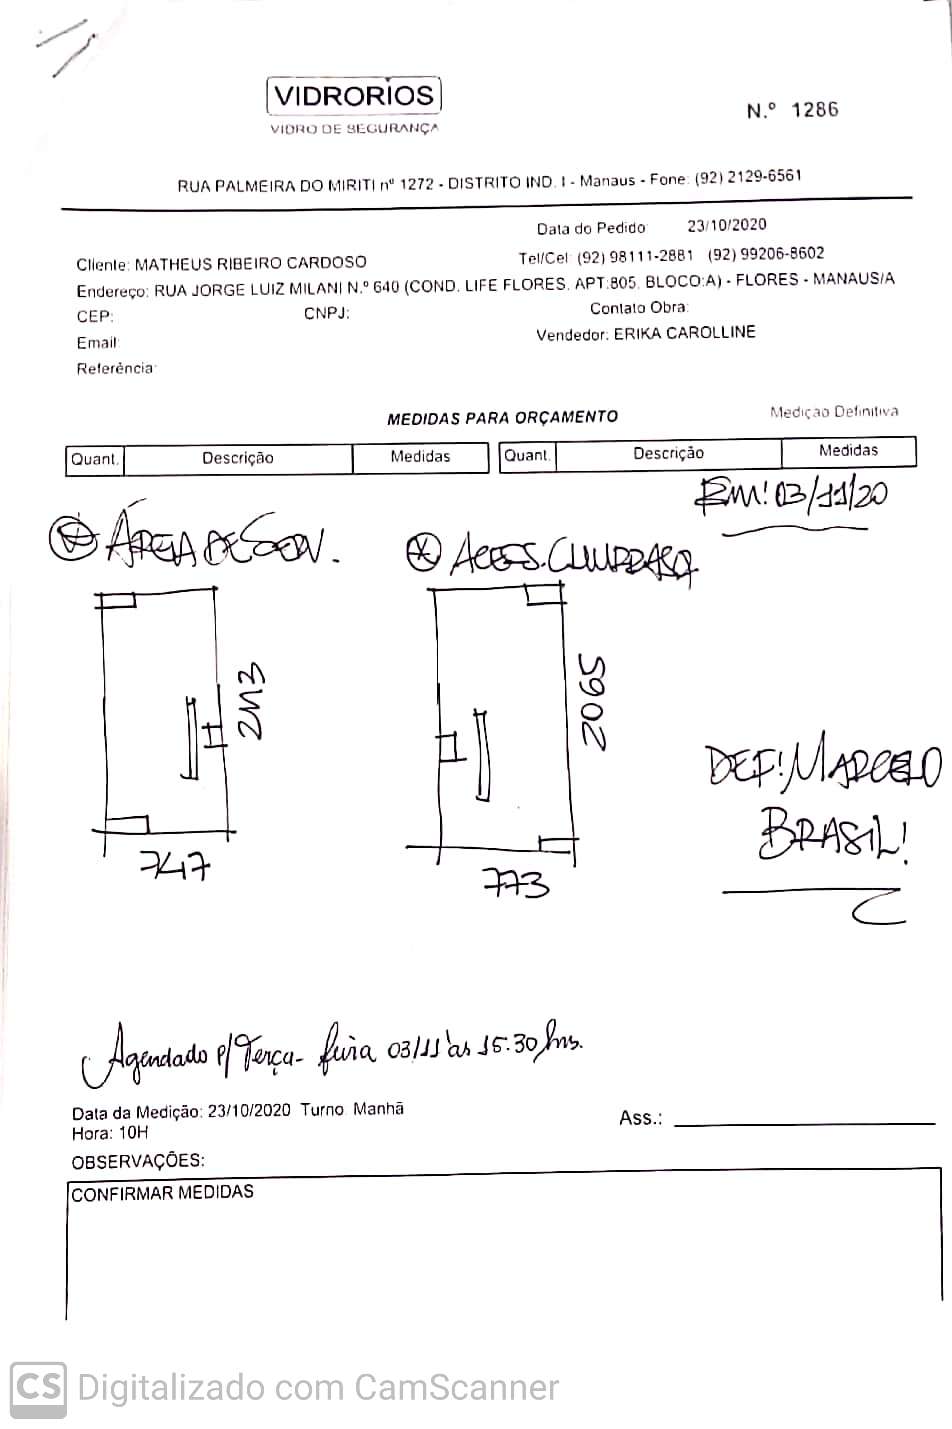 VIDRORIOS
VIDRO DE SEGURANÇA
N.º 1286
RUA PALMEIRA DO MIRITI nº 1272 - DISTRITO IND. I - Manaus - Fone: (92) 2129-6561
Data do Pedido 23/10/2020
Cliente: MATHEUS RIBEIRO CARDOSO Tel/Cel: (92) 98111-2881 (92) 99206-8602
Endereço: RUA JORGE LUIZ MILANI N.º 640 (COND. LIFE FLORES, APT:805, BLOCO:A) - FLORES - MANAUS/A
CEP: CNPJ: Contato Obra:
Email: Vendedor: ERIKA CAROLLINE
Referência:
MEDIDAS PARA ORÇAMENTO Medição Definitiva
Quant. Descrição Medidas Quant. Descrição Medidas
EM! 03/11/20
ÁREA DE SERV. ACESS. CHURRASQ.
2113 2065
747 773
DEF! MARCELO
BRASIL!
Agendado p/ Terça-feira 03/11 às 15:30 hrs.
Data da Medição: 23/10/2020 Turno: Manhã
Hora: 10H
Ass.:
OBSERVAÇÕES:
CONFIRMAR MEDIDAS
CS Digitalizado com CamScanner